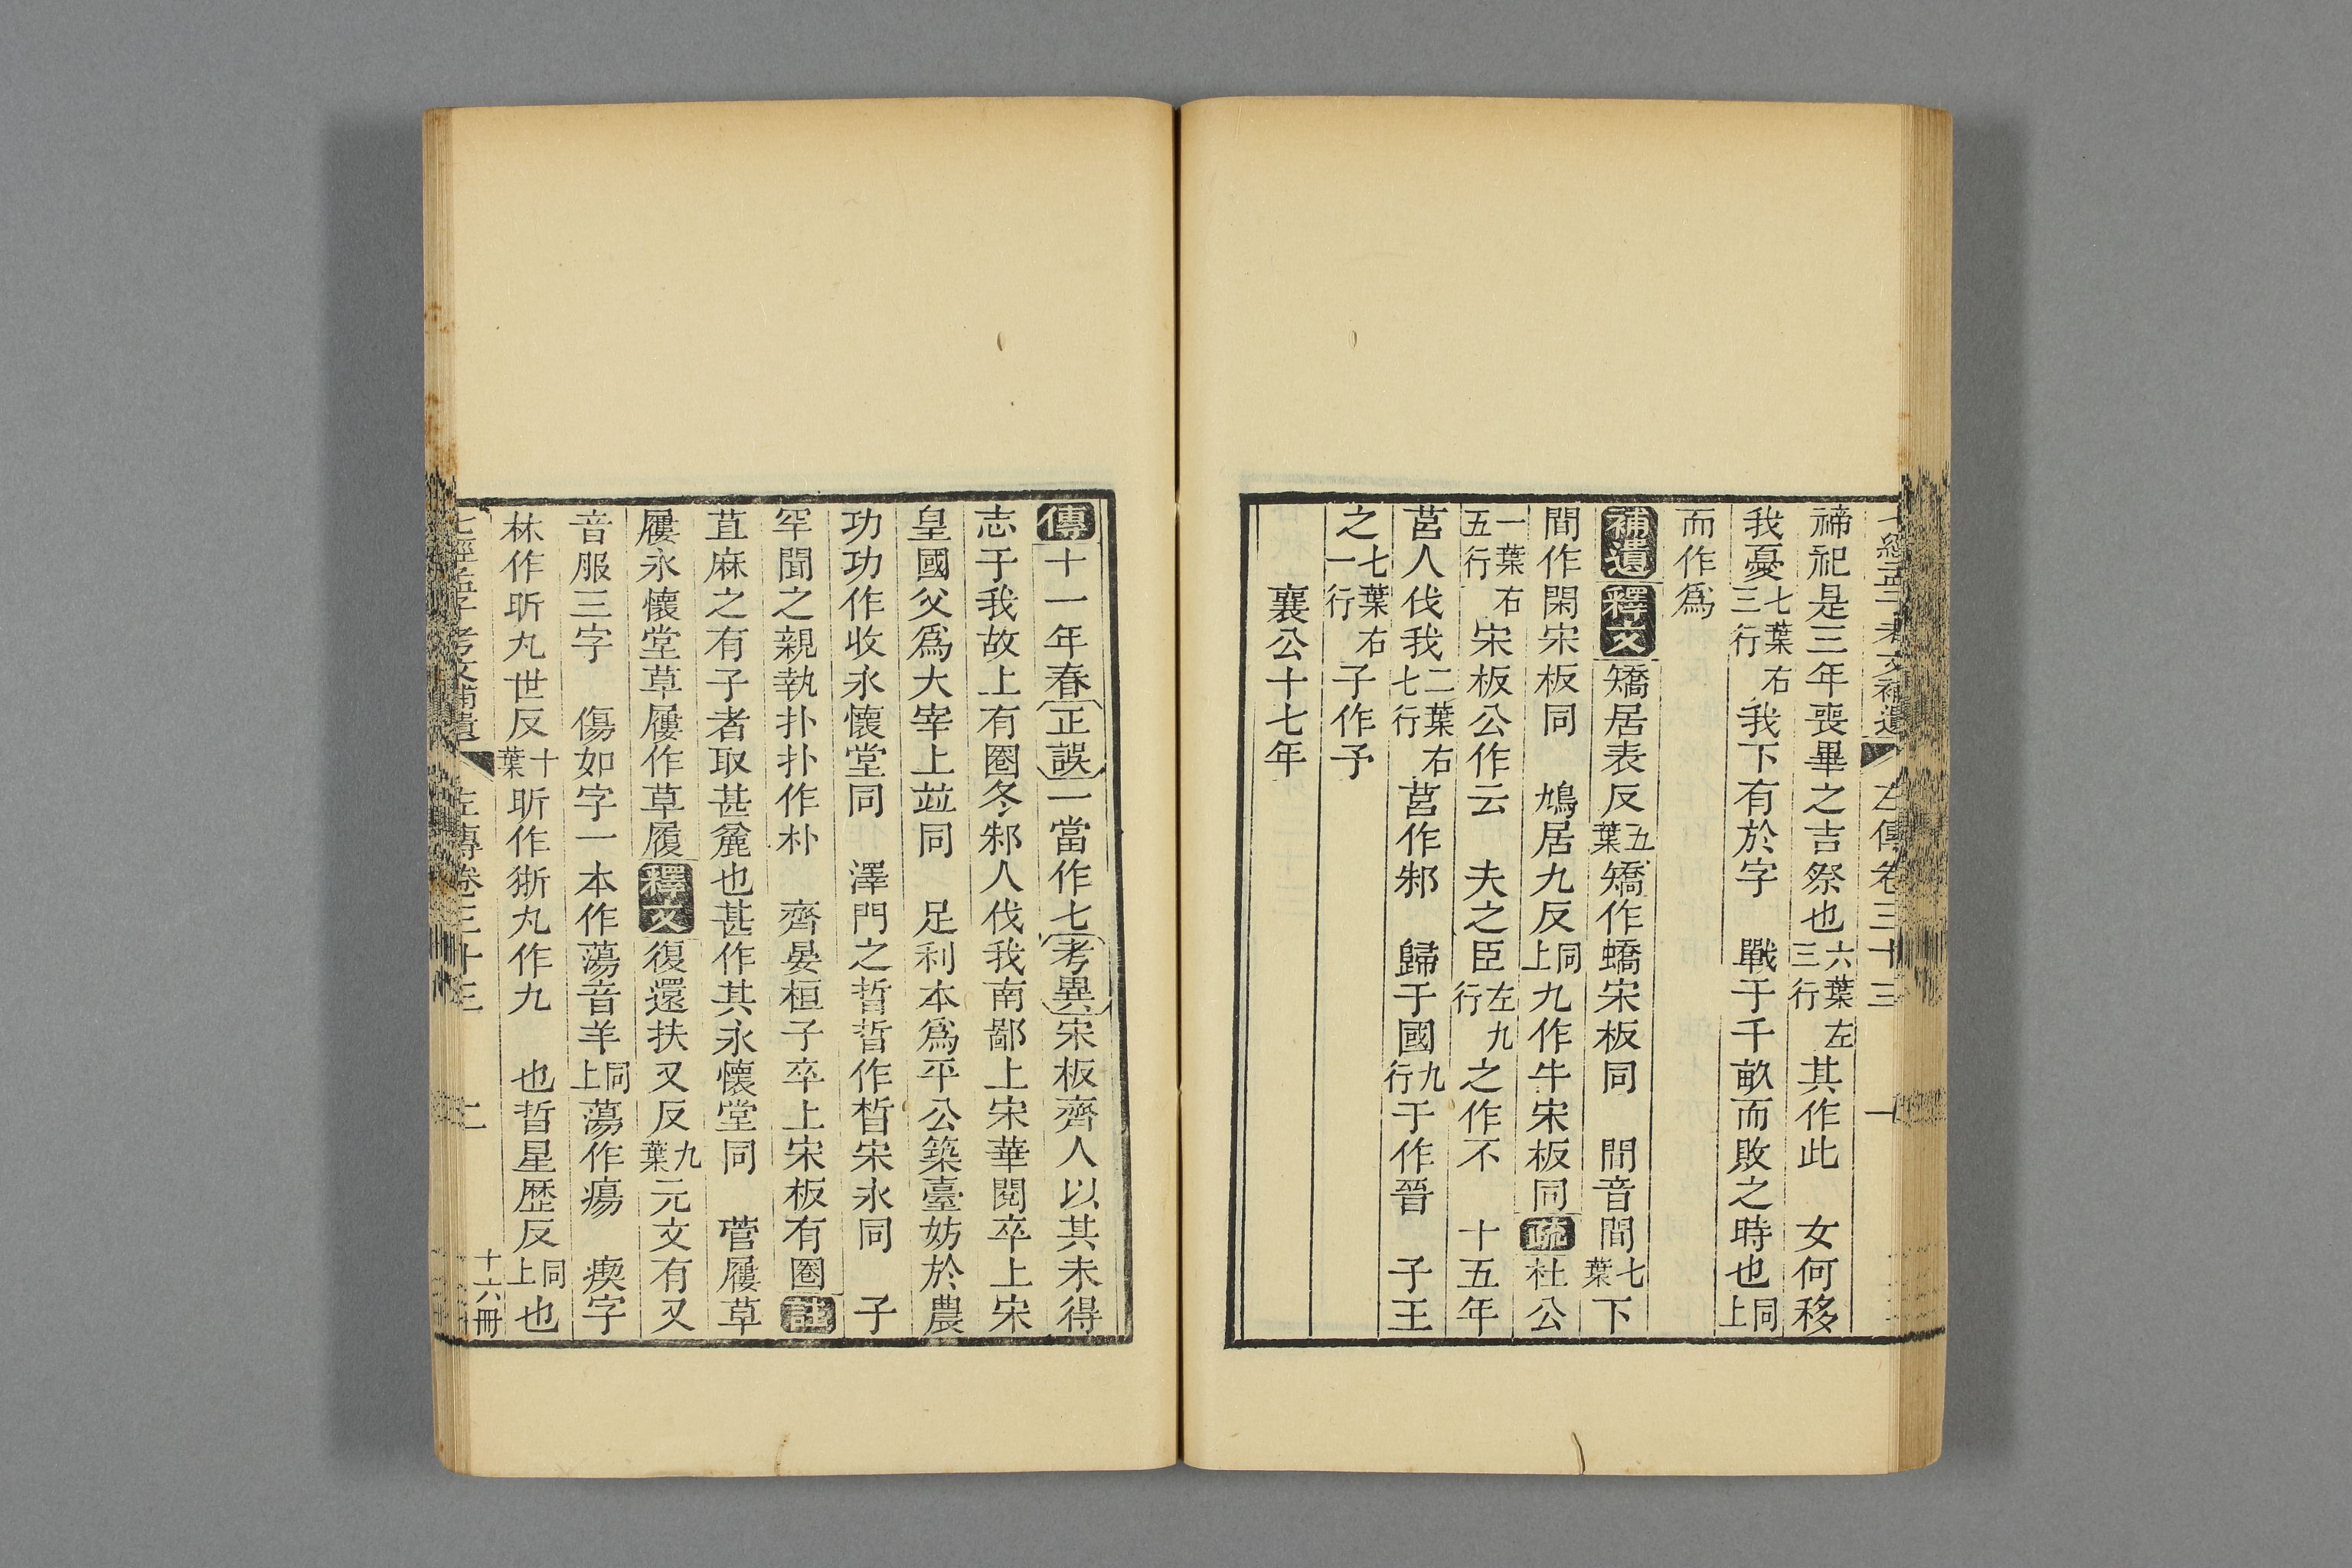 七經孟子考文補遺 左傳卷三十三 一
禘祀是三年喪畢之吉祭也六葉左三行其作此 女何移
我憂七葉右三行我下有於字 戰于千畝而敗之時也同上
而作爲
補遺釋文矯居表反五葉矯作蟜宋板同 閒音間七葉下
間作閑宋板同 鳩居九反同上九作牛宋板同疏杜公
一葉右五行宋板公作云 夫之臣左九行之作不 十五年
莒人伐我二葉右七行莒作邾 歸于國九行于作晉 子王
之七葉右一行子作予
襄公十七年
傳十一年春正誤一當作七考異宋板齊人以其未得
志于我故上有圈冬邾人伐我南鄙上宋華閱卒上宋
皇國父爲大宰上竝同 足利本爲平公築臺妨於農
功功作收永懷堂同 澤門之晳晳作皙宋永同 子
罕聞之親執扑扑作朴 齊晏桓子卒上宋板有圈註
苴麻之有子者取甚麄也甚作其永懷堂同 菅屨草
屨永懷堂草屨作草履釋文復還扶又反九葉元文有又
音服三字 傷如字一本作蕩音羊同上蕩作瘍 瘈字
林作㹞丸世反十葉㹞作狾丸作九 也晢星歷反同上也
七經孟子考文補遺 左傳卷三十三 二 十六冊